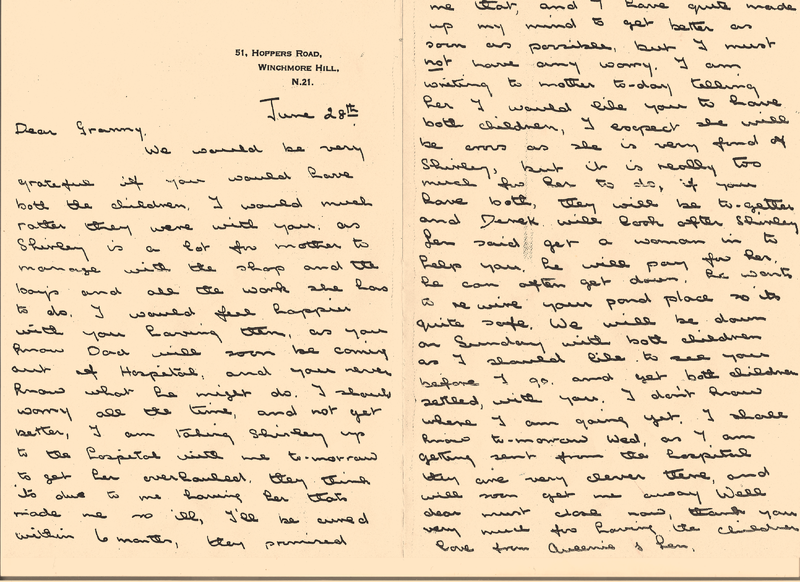 51, HOPPERS ROAD,
WINCHMORE HILL,
N.21.
June 28th
Dear Granny.
We would be very
grateful if you would have
both the children. I would much
rather they were with you. as
Shirley is a lot for mother to
manage with the shop and the
boys and all the work she has
to do. I would feel happier
with you having them, as you
know Dad will soon be coming
out of Hospital, and you never
know what he might do. I should
worry all the time, and not get
better, I am taking Shirley up
to the hospital with me to-morrow
to get her overhauled. they think
its due to me having her thats
made me so ill, I'll be cured
within 6 months, they promised
me that, and I have quite made
up my mind to get better as
soon as possible, but I must
not have any worry. I am
writing to mother to-day telling
her I would like you to have
both children, I expect she will
be cross as she is very fond of
Shirley, but it is really too
much for her to do, if you
have both, they will be to-gether
and Derek will look after Shirley
Len said get a woman in to
help you. he will pay for her.
he can often get down. he wants
to re wire your pond place so its
quite safe. We will be down
on Sunday with both children
as I should like to see you
before I go. and get both children
settled, with you. I don't know
where I am going yet. I shall
know to-morrow Wed, as I am
getting sent from the hospital
they are very clever there, and
will soon get me away Well
dear must close now, thank you
very much for having the children
love from Queenie & Len.